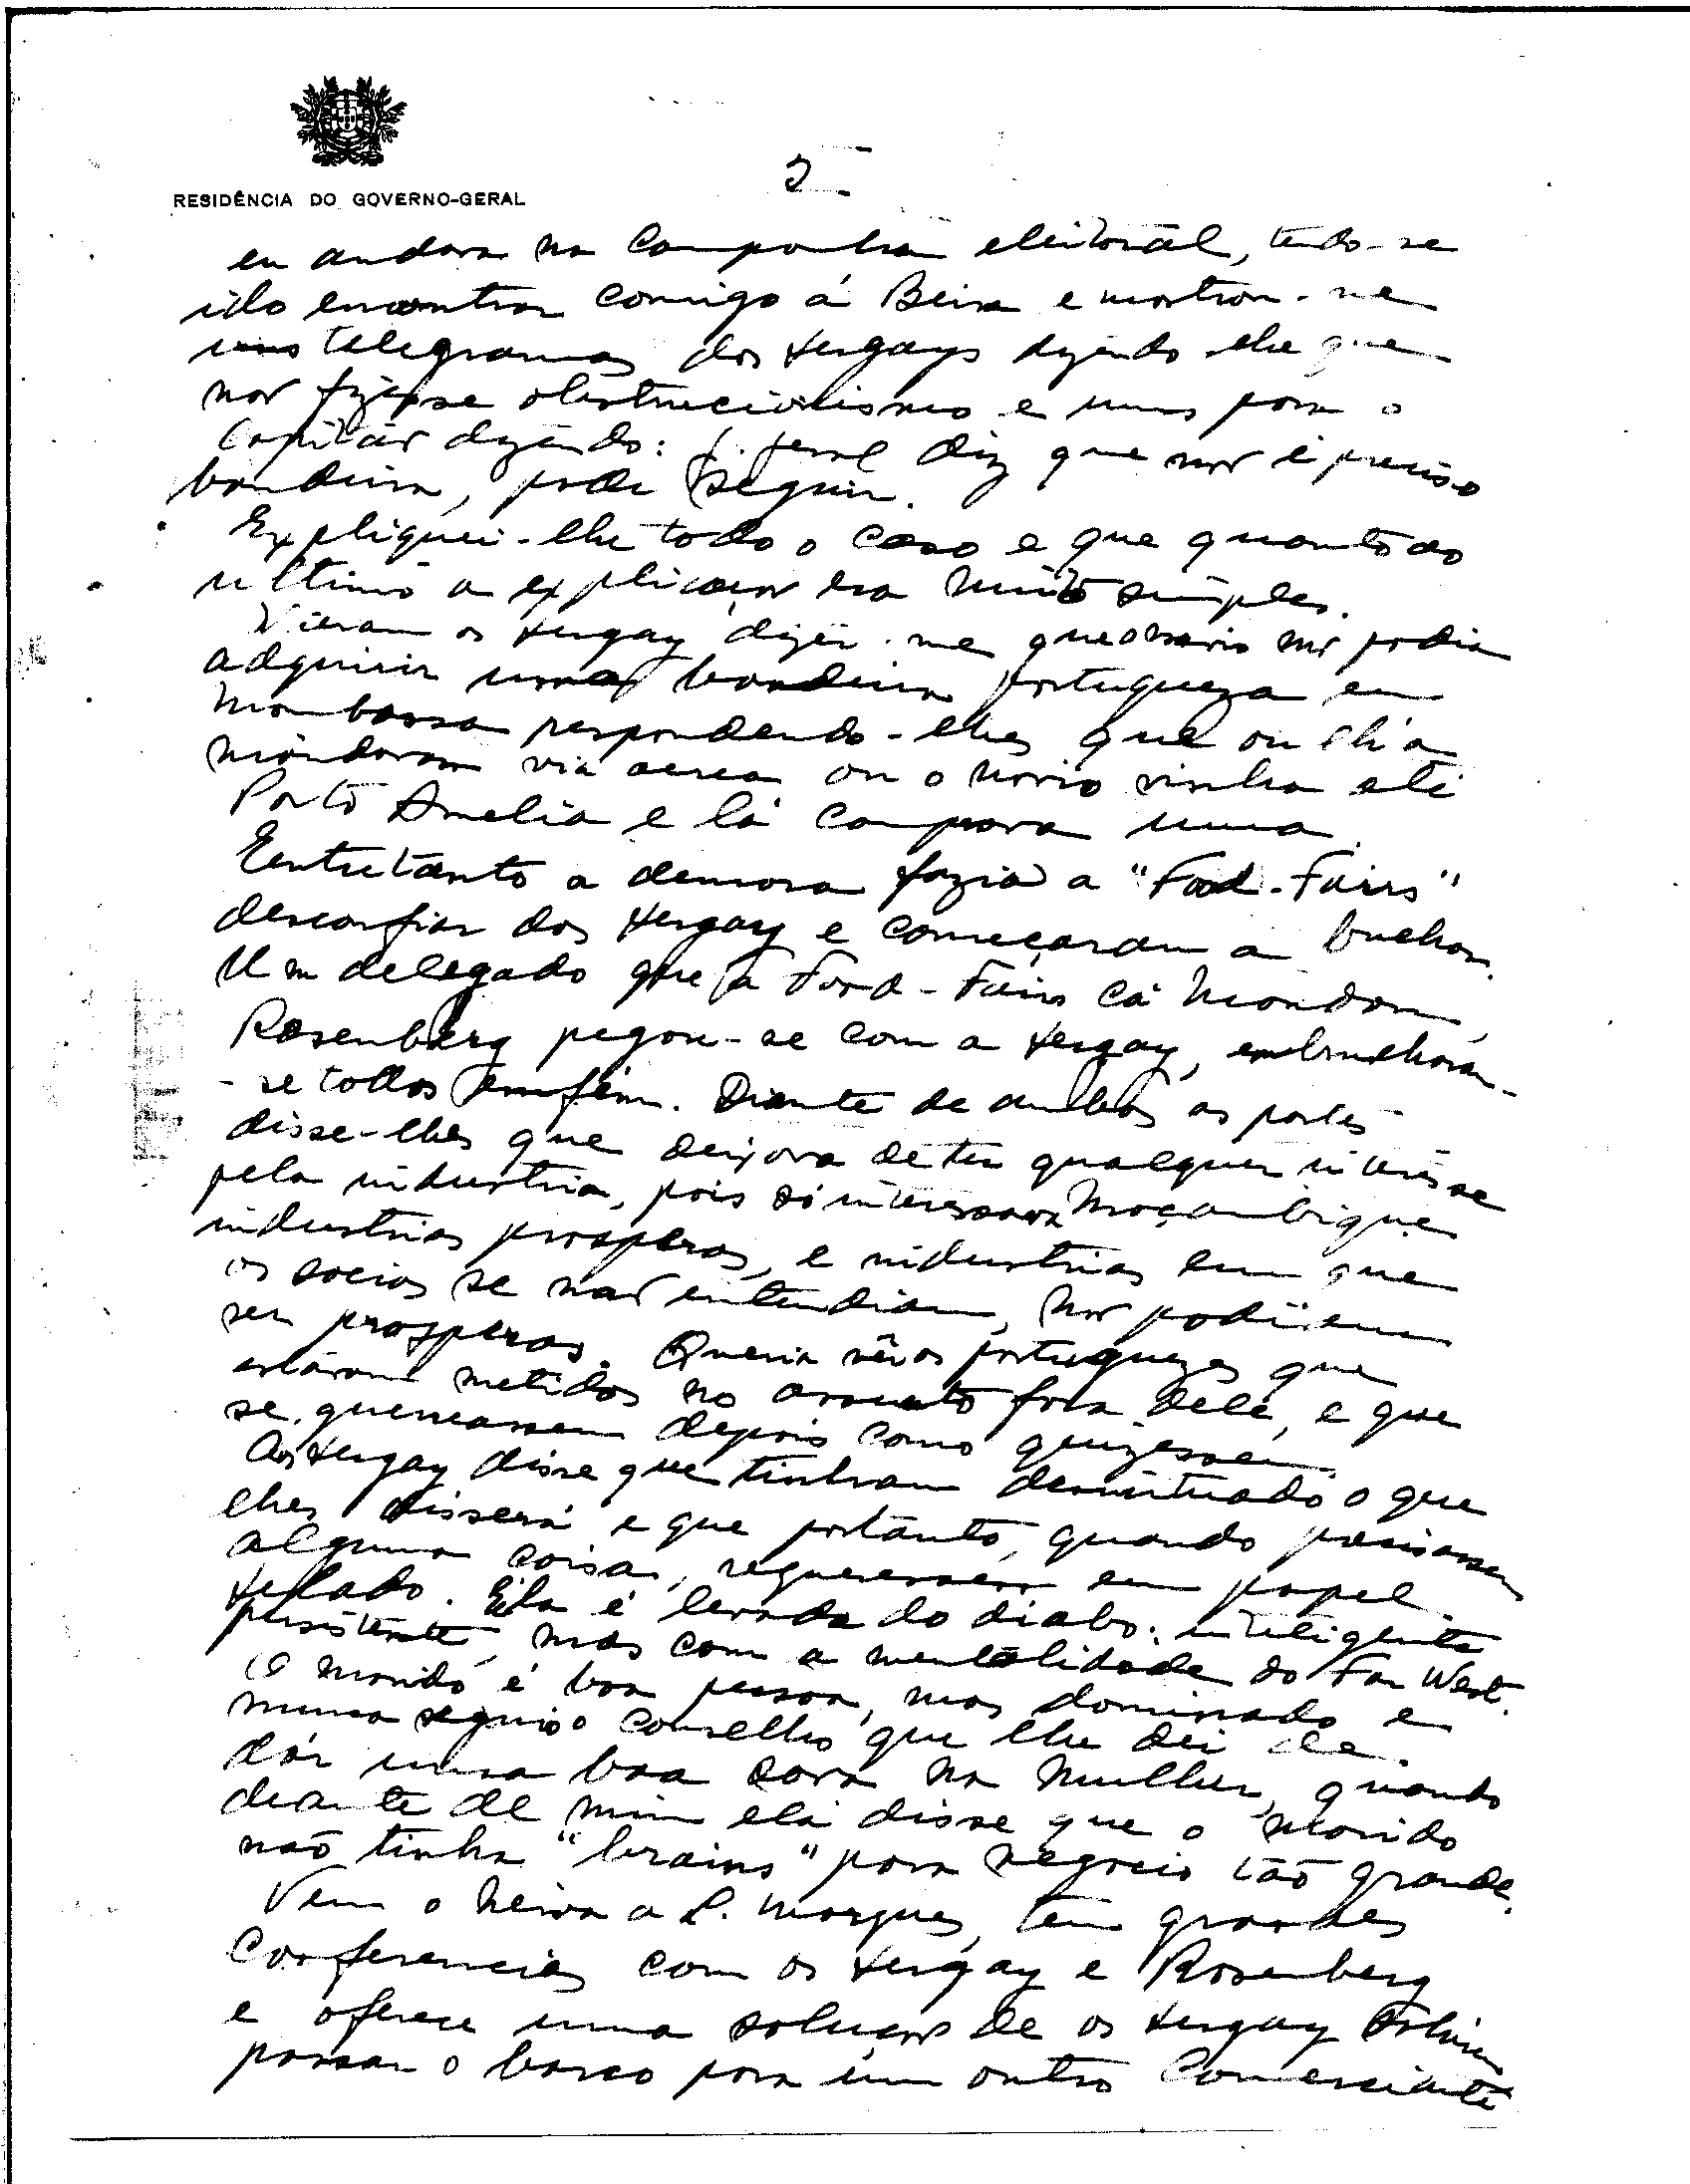 RESIDÊNCIA DO GOVERNO-GERAL
2
eu andava na Campanha eleitoral, tendo-se
ido encontrar comigo á Beira e mostrou-me
uns telegramas dos Hergays dizendo-lhe que
não fizesse obstruccionismo e uns para o
Capitão dizendo: G. Geral diz que não é preciso
bandeira, pode seguir.
Expliquei-lhe todo o caso e que quanto ao
ultimo a explicação era muito simples.
Vieram os Hergay dizer-me que o navio não podia
adquirir uma bandeira portugueza em
Mombassa respondendo-lhes que ou lh'a
mandavam via aerea ou o navio vinha até
Porto Amelia e lá comprava uma.
Eentretanto a demora fazia a "Food-Fairs"
desconfiar dos Hergay e começaram a bulhar.
Um delegado que a Food-Fairs cá mandou,
Rosenberg pegou-se com a Hergay, embrulharam-
-se todos emfim. Diante de ambas as partes
disse-lhes que deixava de ter qualquer interesse
pela industria, pois só interessava Moçambique
industrias prosperas, e industrias em que
os socios se não entendiam, não podiam
ser prosperas. Queria vêr os portuguezes que
estavam metidos no assunto fora dele, e que
se queneassem depois como quizessem.
Aos Hergay disse que tinham desvirtuado o que
lhes dissera e que portanto, quando precisassem
alguma coisa, requeressem em papel
selado. Ela é levada do diabo: inteligente
persistente, mas com a mentalidade do Far West.
O marido é boa pessoa, mas dominado e
nunca seguio o conselho que lhe dei de
dár uma boa sova na mulher, quando
deante de mim ela disse que o marido
não tinha "brains" para negocio tão grande.
Vem o Neiva a L. Marques, tem grandes
Conferencias com os Hergay e Rosenberg
e oferece uma solução de os Hergay
passar o barco para um outro Comerciante